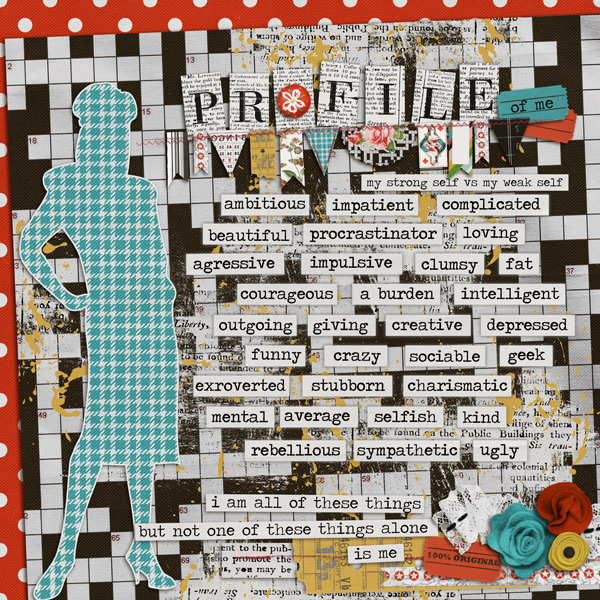 PROFILE
of me
my strong self vs my weak self
ambitious impatient complicated
beautiful procrastinator loving
agressive impulsive clumsy fat
courageous a burden intelligent
outgoing giving creative depressed
funny crazy sociable geek
exroverted stubborn charismatic
mental average selfish kind
rebellious sympathetic ugly
i am all of these things
but not one of these things alone
is me
100% ORIGINAL